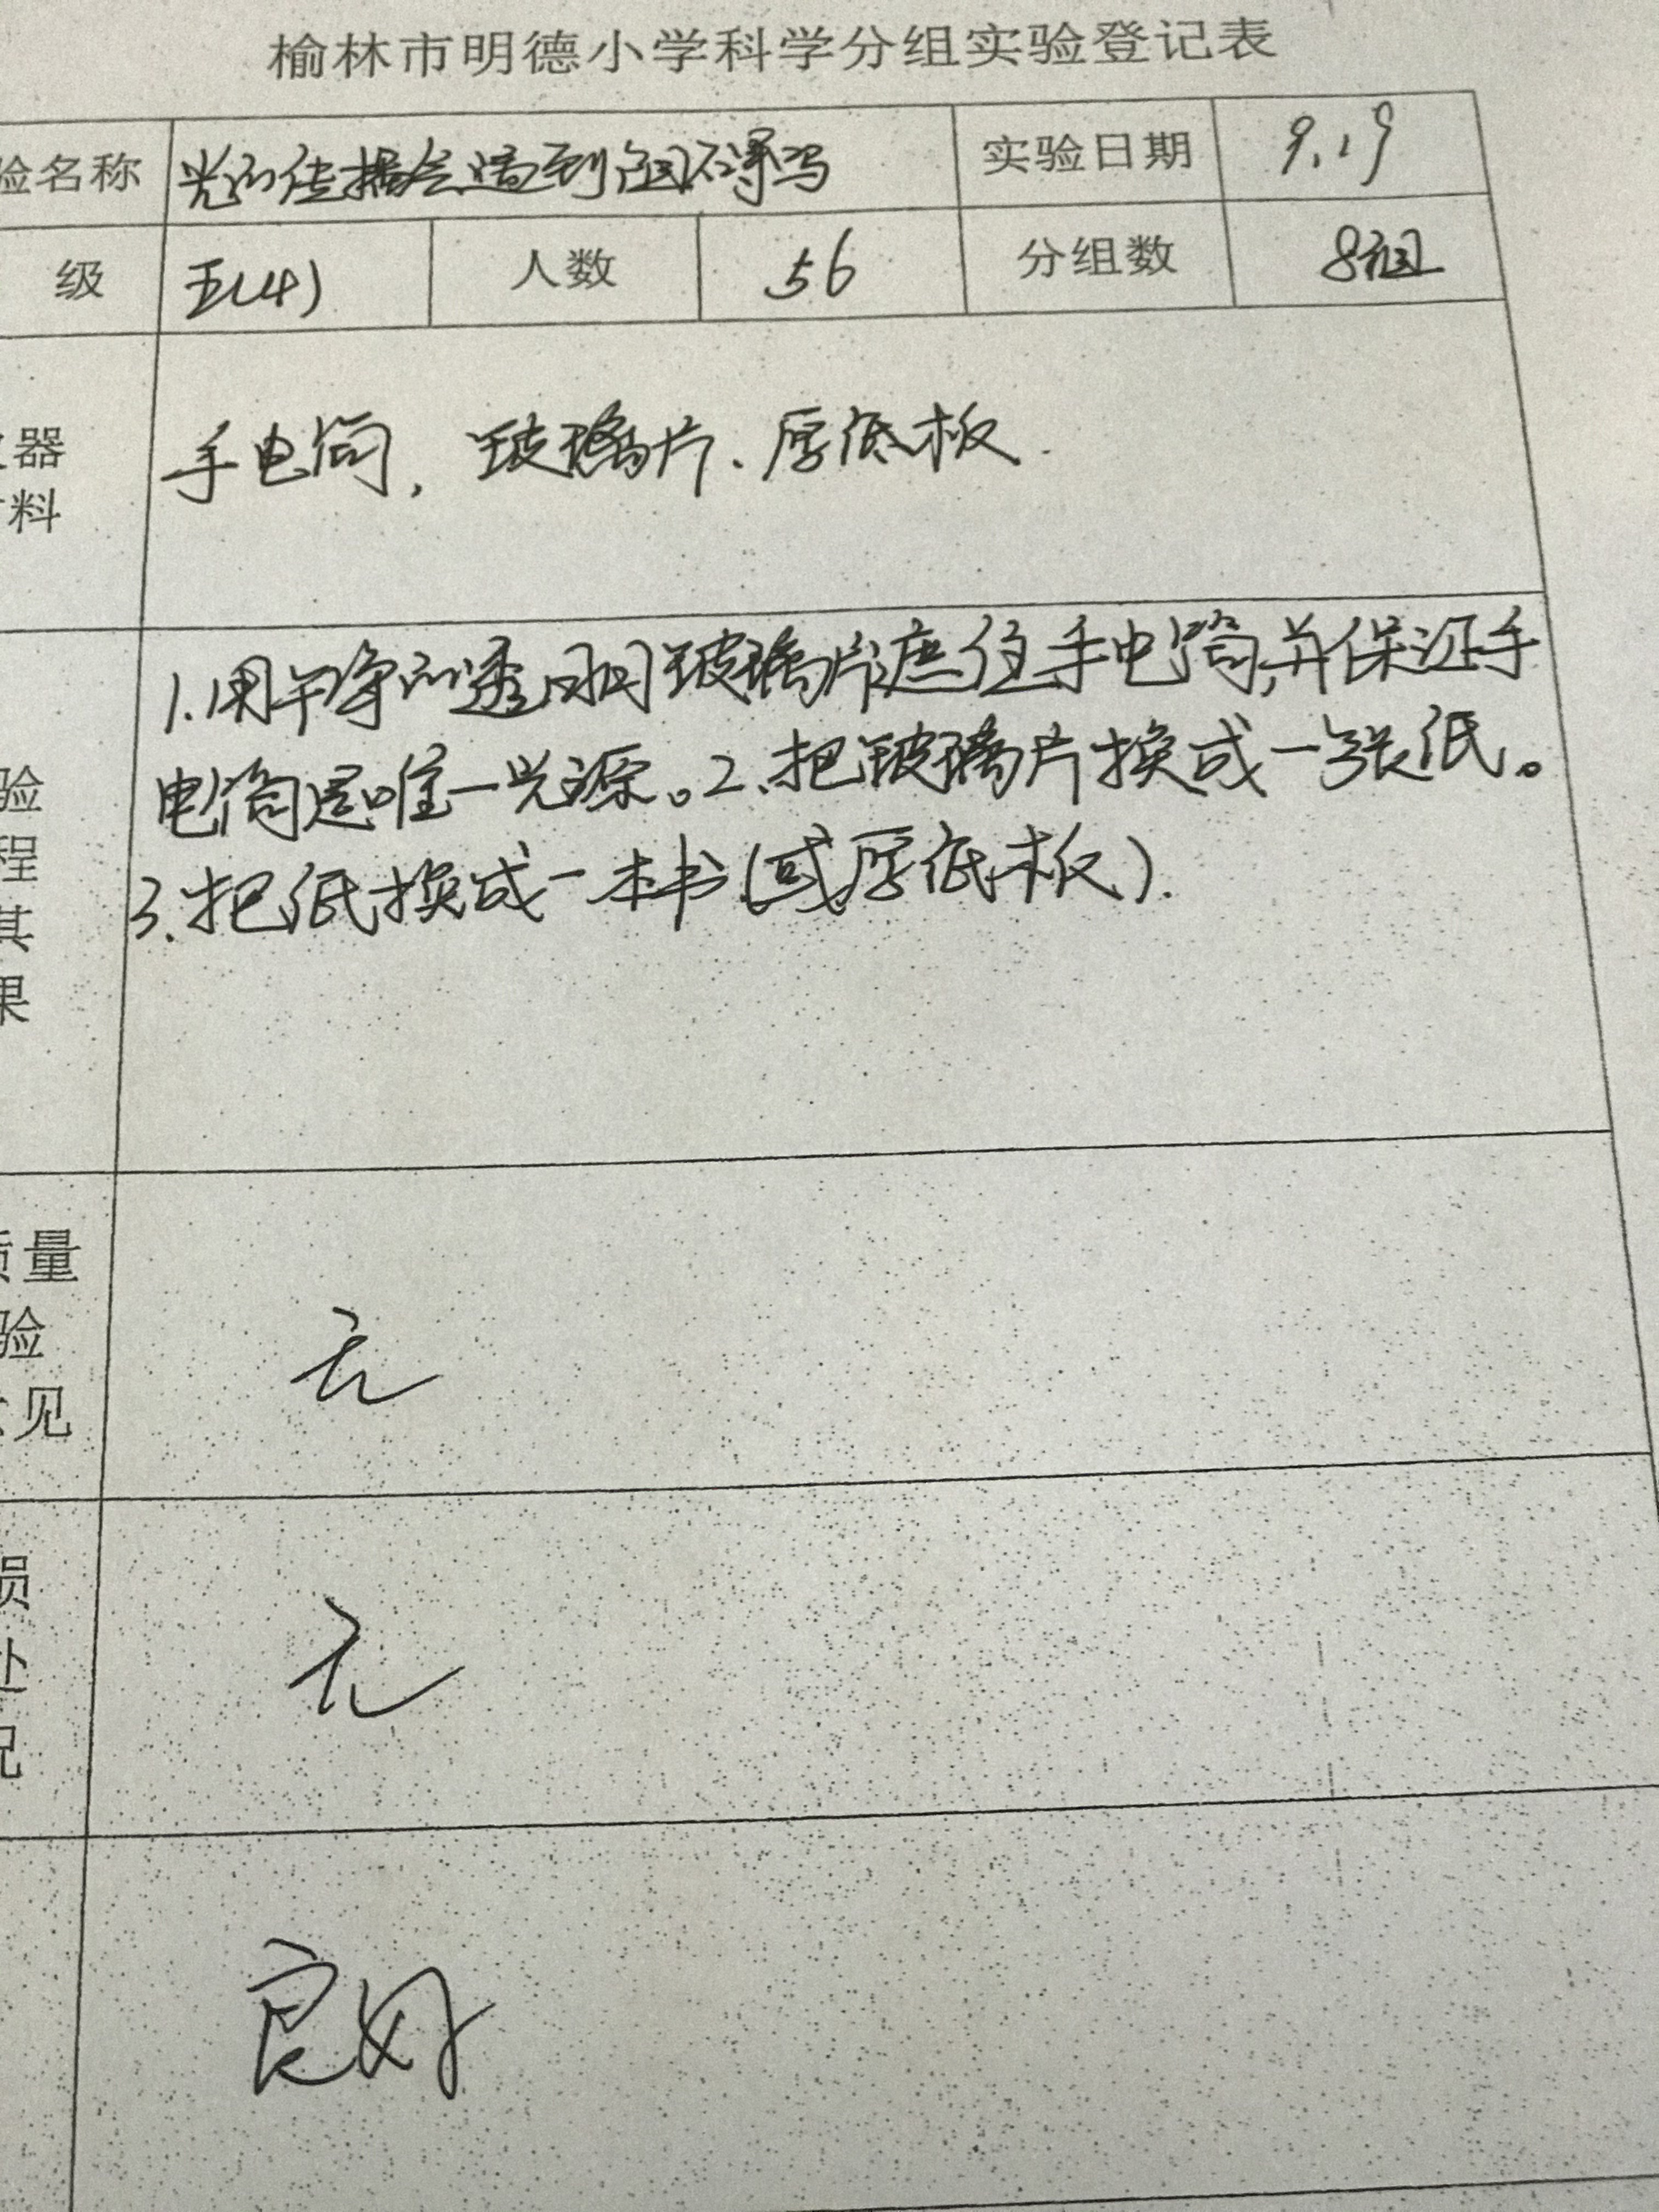 榆林市明德小学科学分组实验登记表
验名称 光的传播会遇到阻碍吗 实验日期 9.19
级 五(4) 人数 56 分组数 8组
器 手电筒，玻璃片、厚纸板.
料
1.用干净的透明玻璃片遮住手电筒,并保证手
验 电筒是唯一光源。2、把玻璃片换成一张纸。
程 3、把纸换成一本书(或厚纸板).
其
果
质量
验 无
见
损
处 无
况
良好